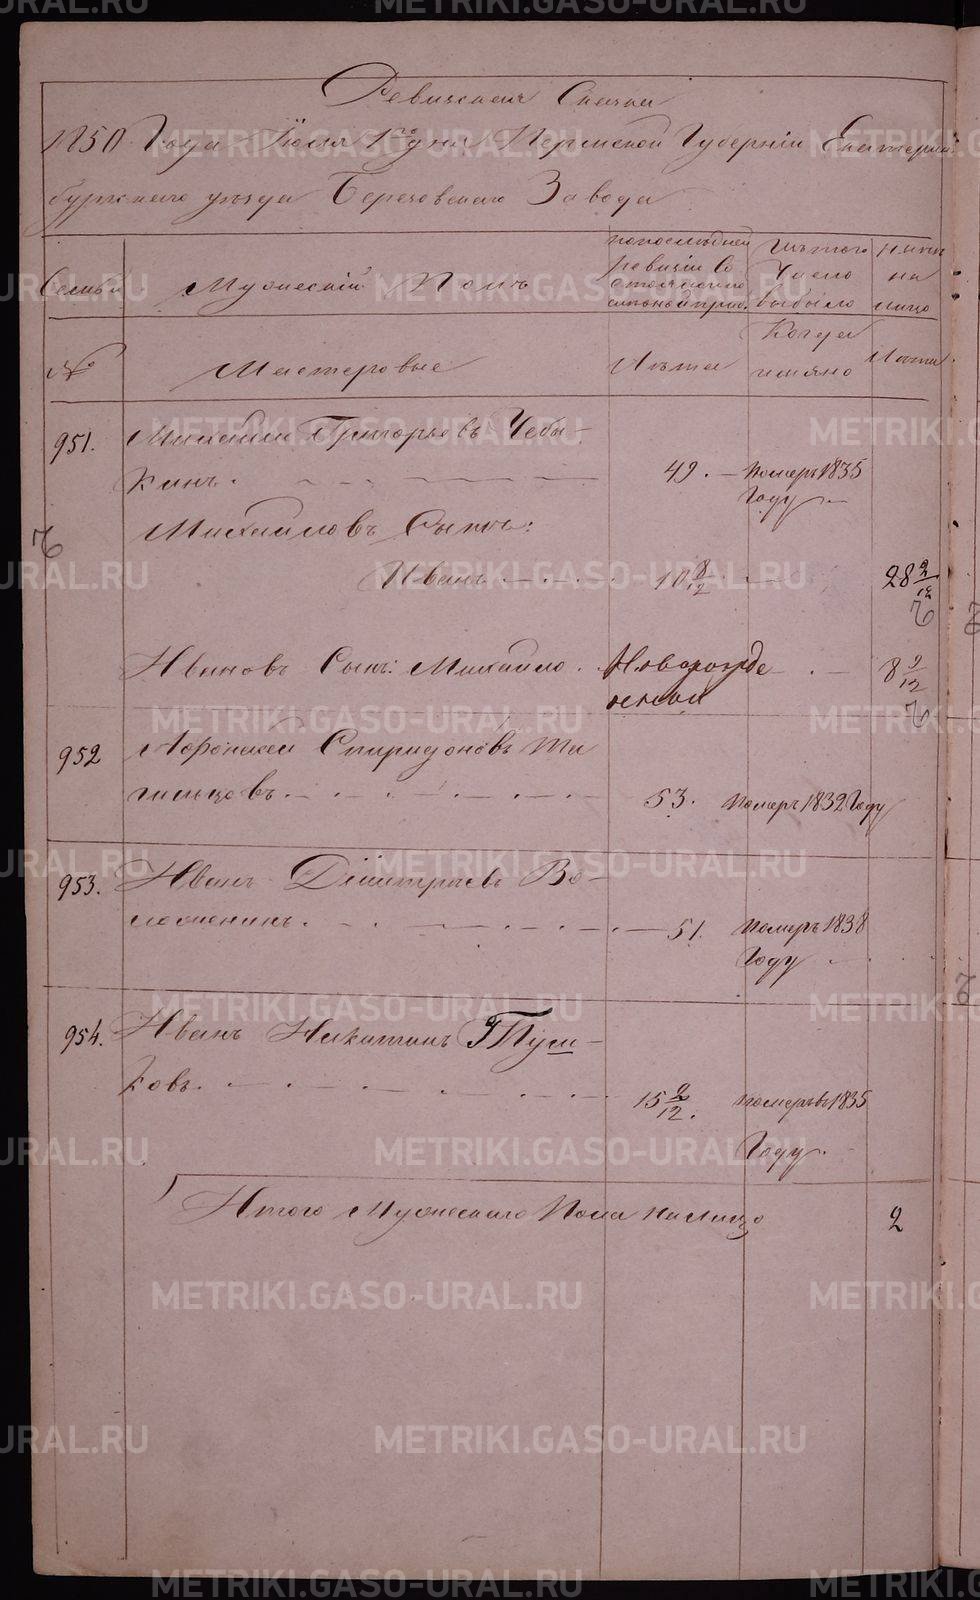 Ревизская Сказка
1850 Года Июля 1го дня Пермской Губернiи Екатерин
бургскаго уезда Березовскаго Завода
Семьи
Мужескiй Полъ
по последней
ревизiи Со
стояло и по
Изъ того
Число
выбыло
Ныне
на
лицо
№
Мастеровые
Лета
Когда
имяно
Лета
951.
Михаило Григорьевъ Чебы-
кинъ.
49.
Померъ 1835
Году
Михайловъ Сынъ:
Иванъ
10 8/12
28 2/12
Ивановъ Сынъ: Михайло.
Новорожде
енный
8 9/12
952
Афонасей Спиридоновъ Та
гильцовъ
53.
Померъ 1832 Году
953.
Иванъ Дмитрiевъ Во-
ложенинъ.
51.
Померъ 1838
Году
954.
Иванъ Никитинъ Глуш-
ковъ.
15 2/12.
Померъ въ 1835
Году.
Итого Мужескаго Пола на Лицо
2
METRIKI.GASO-URAL.RU